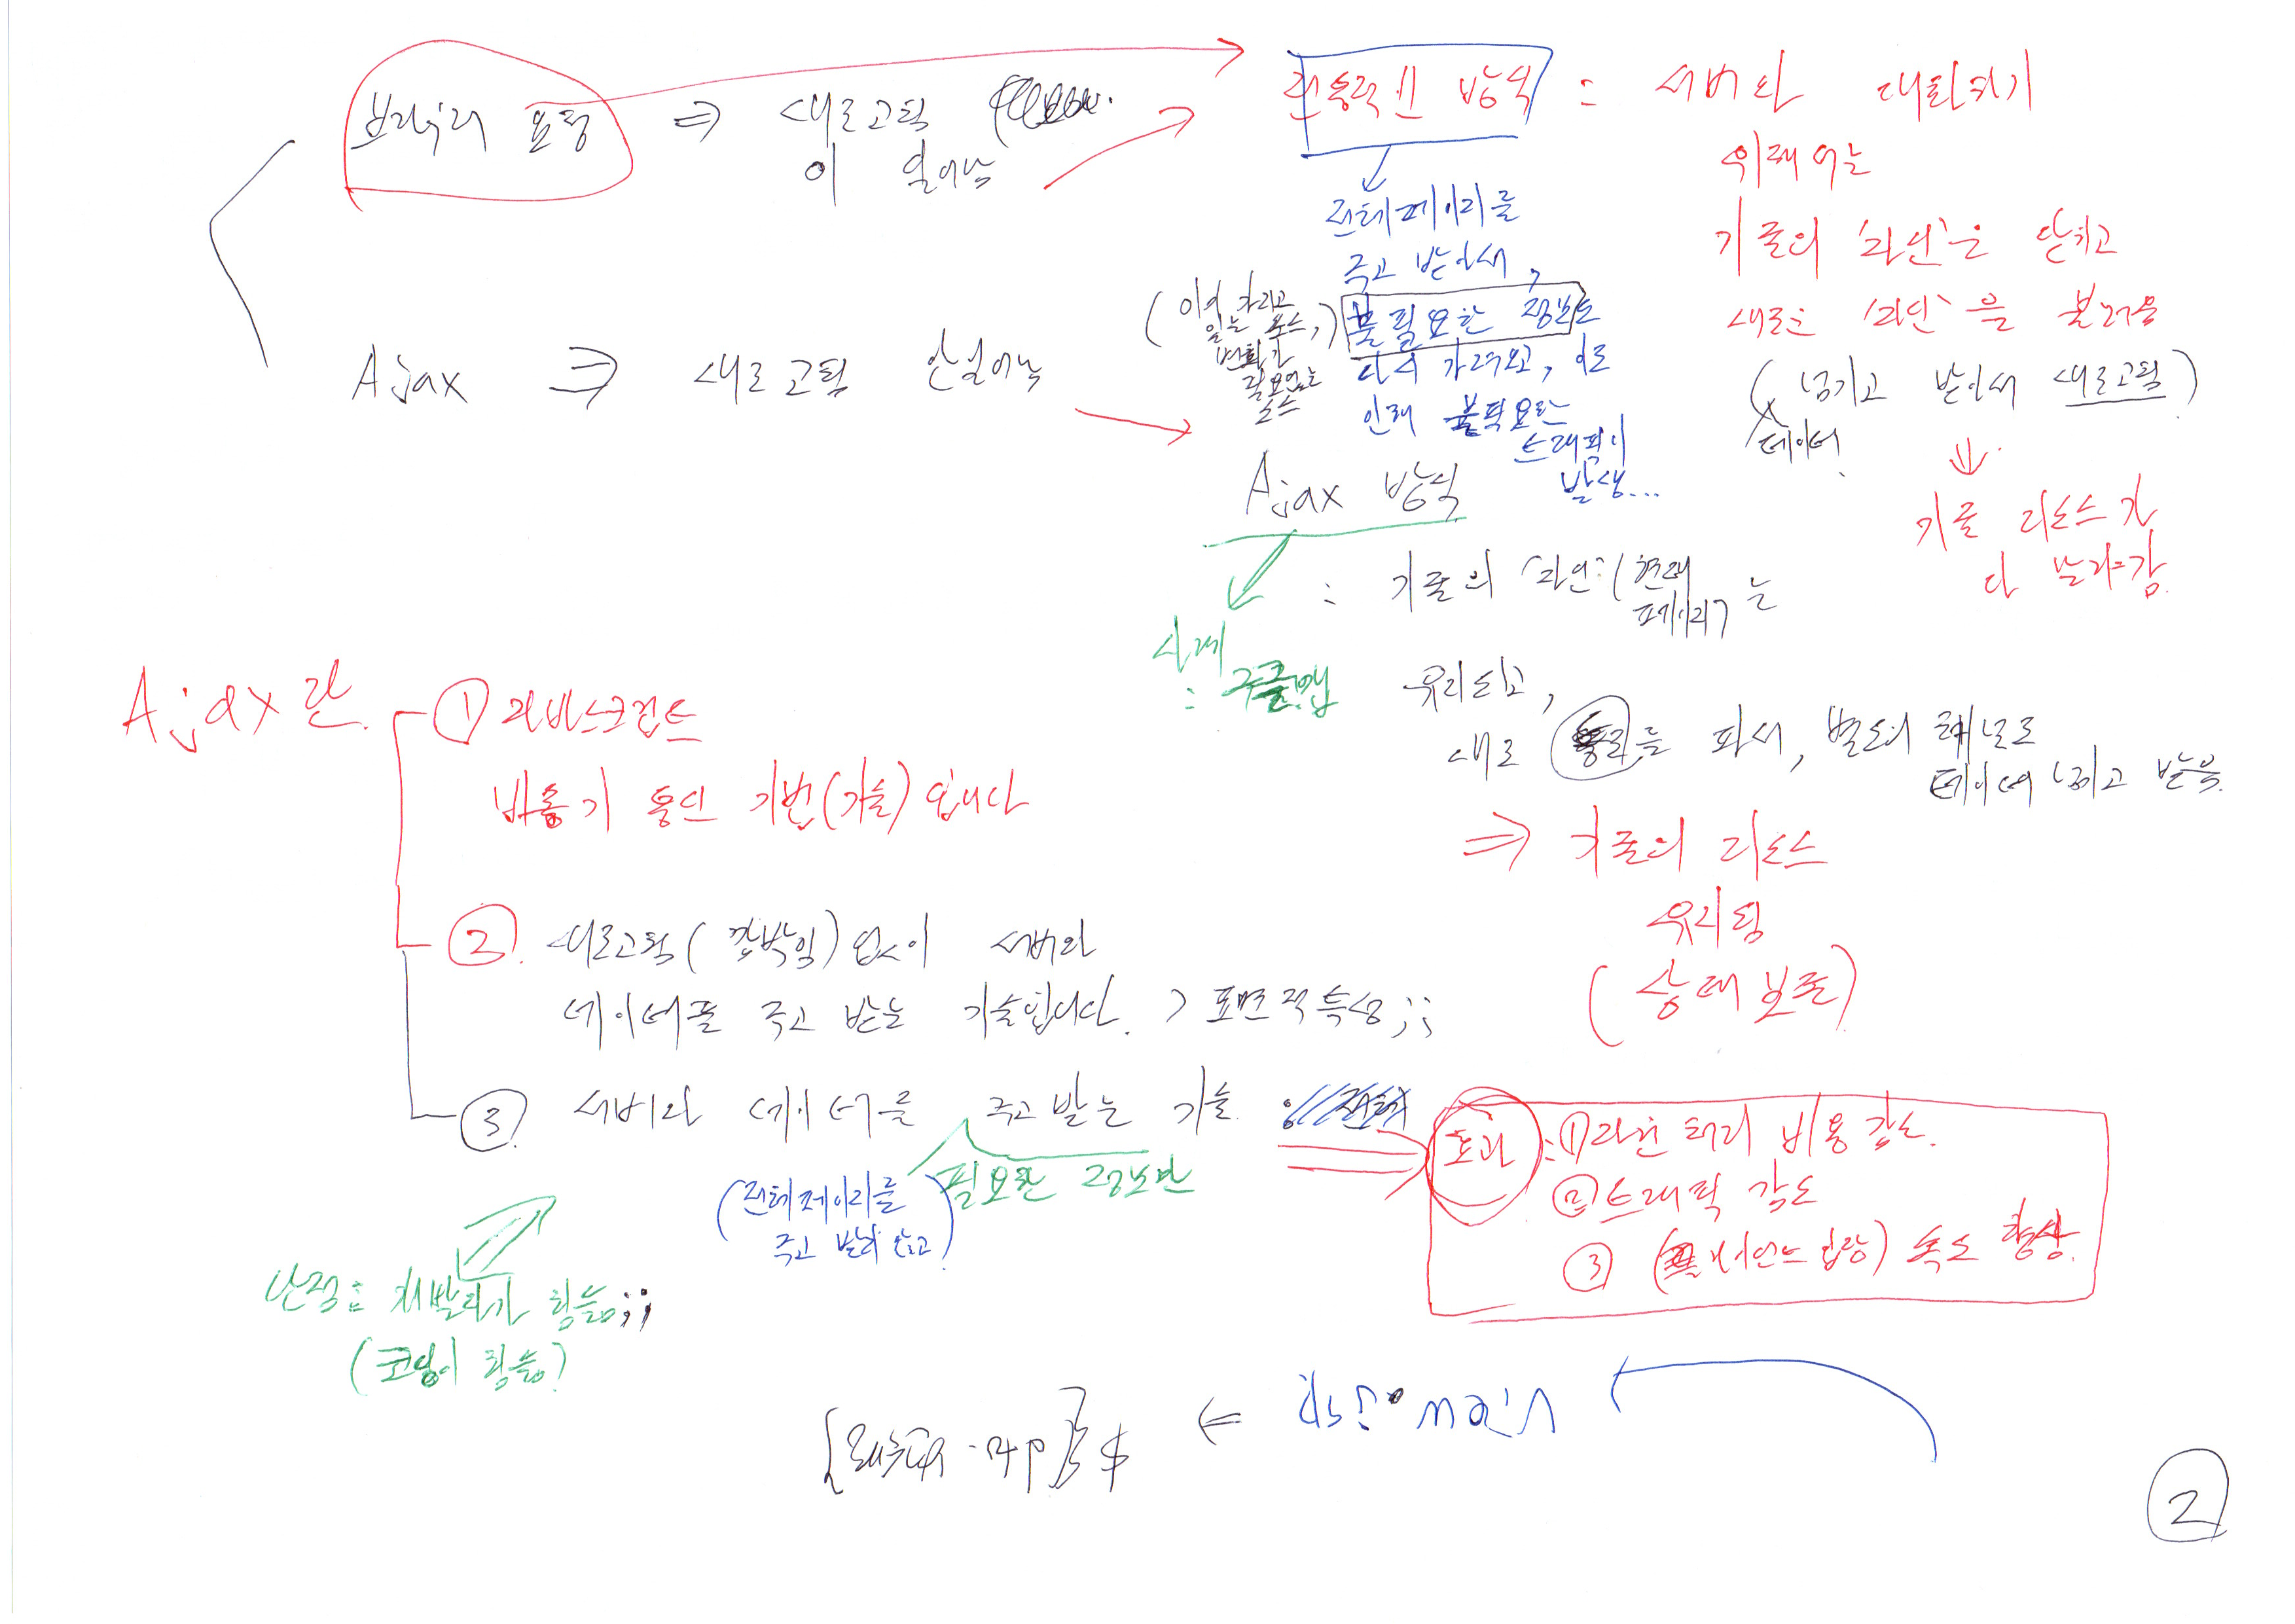 브라우저 요청 ⇒ 새로고침
이 일어남
Ajax ⇒ 새로고침 안일어남
전통적인 방식 : 서버와 대화하기
위해서는
기존의 '화면'은 닫히고
새로운 '화면'을 불러옴
(넘기고 받아서 새로고침)
데이터
↓
기존 리소스가
다 날라감
↓
전체페이지를
주고 받아서,
불필요한 정보도
다시 가져오고, 이로
인해 불필요한
트래픽이
발생...
(이미 가지고
있는 소스,)
변화가
필요없는
소스
Ajax 방식
: 기존의 '화면'(현재
페이지)는
유지되고,
새로 통로를 파서, 별도의 채널로
데이터 넘기고 받음
⇒ 기존의 리소스
유지됨
(상태 보존)
사례
: 구글맵
Ajax란
① 자바스크립트
비동기 통신 기법(기술)입니다
② 새로고침(깜박임)없이 서버와
데이터를 주고 받는 기술입니다. > 표면적 특성;;
③ 서버와 데이터를 주고 받는 기술
필요한 정보만
(전체페이지를
주고 받지 않고)
효과 : ① 화면 처리 비용 감소.
② 트래픽 감소
③ (클라이언트 입장) 속도 향상.
단점 : 개발하기가 힘듦;;
(코딩이 힘듦)
②